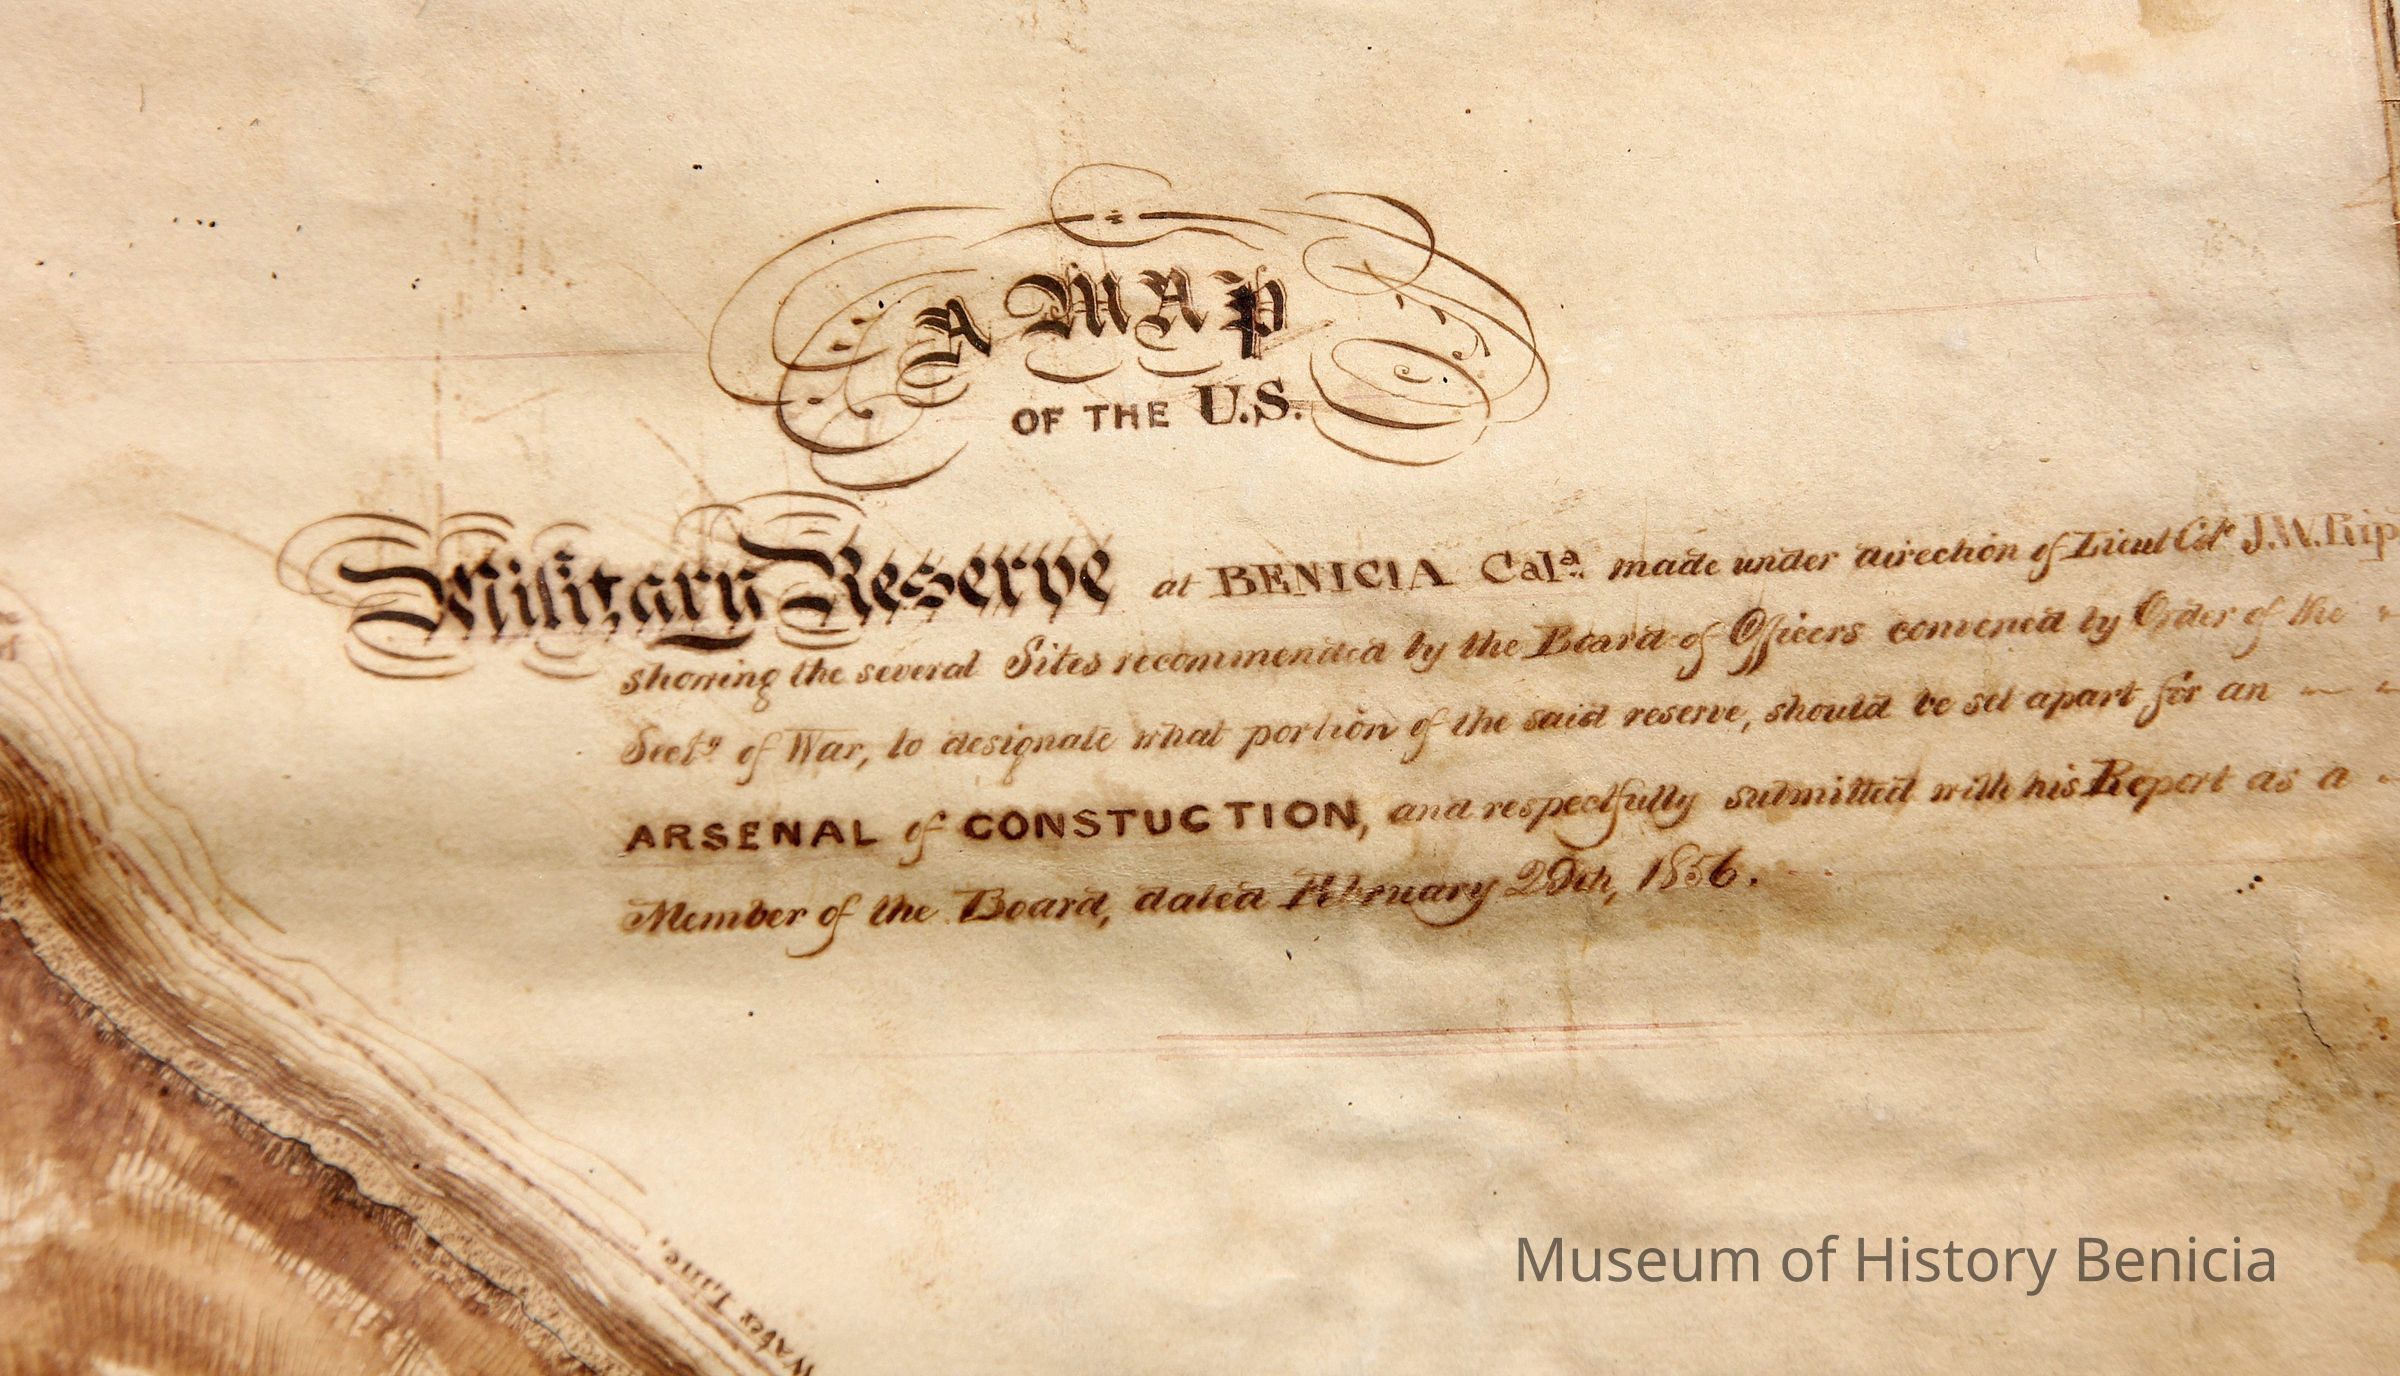 A MAP
OF THE U.S.
Military Reserve at BENICIA Cala. made under direction of Lieut Col. J.W. Rip
showing the several Sites recommended by the Board of Officers convened by Order of the "
Secty of War, to designate what portion of the said reserve, should be set apart for an " "
ARSENAL of CONSTUCTION, and respectfully submitted with his Report as a "
Member of the Board, dated February 29th, 1856.
Water Line,
Museum of History Benicia